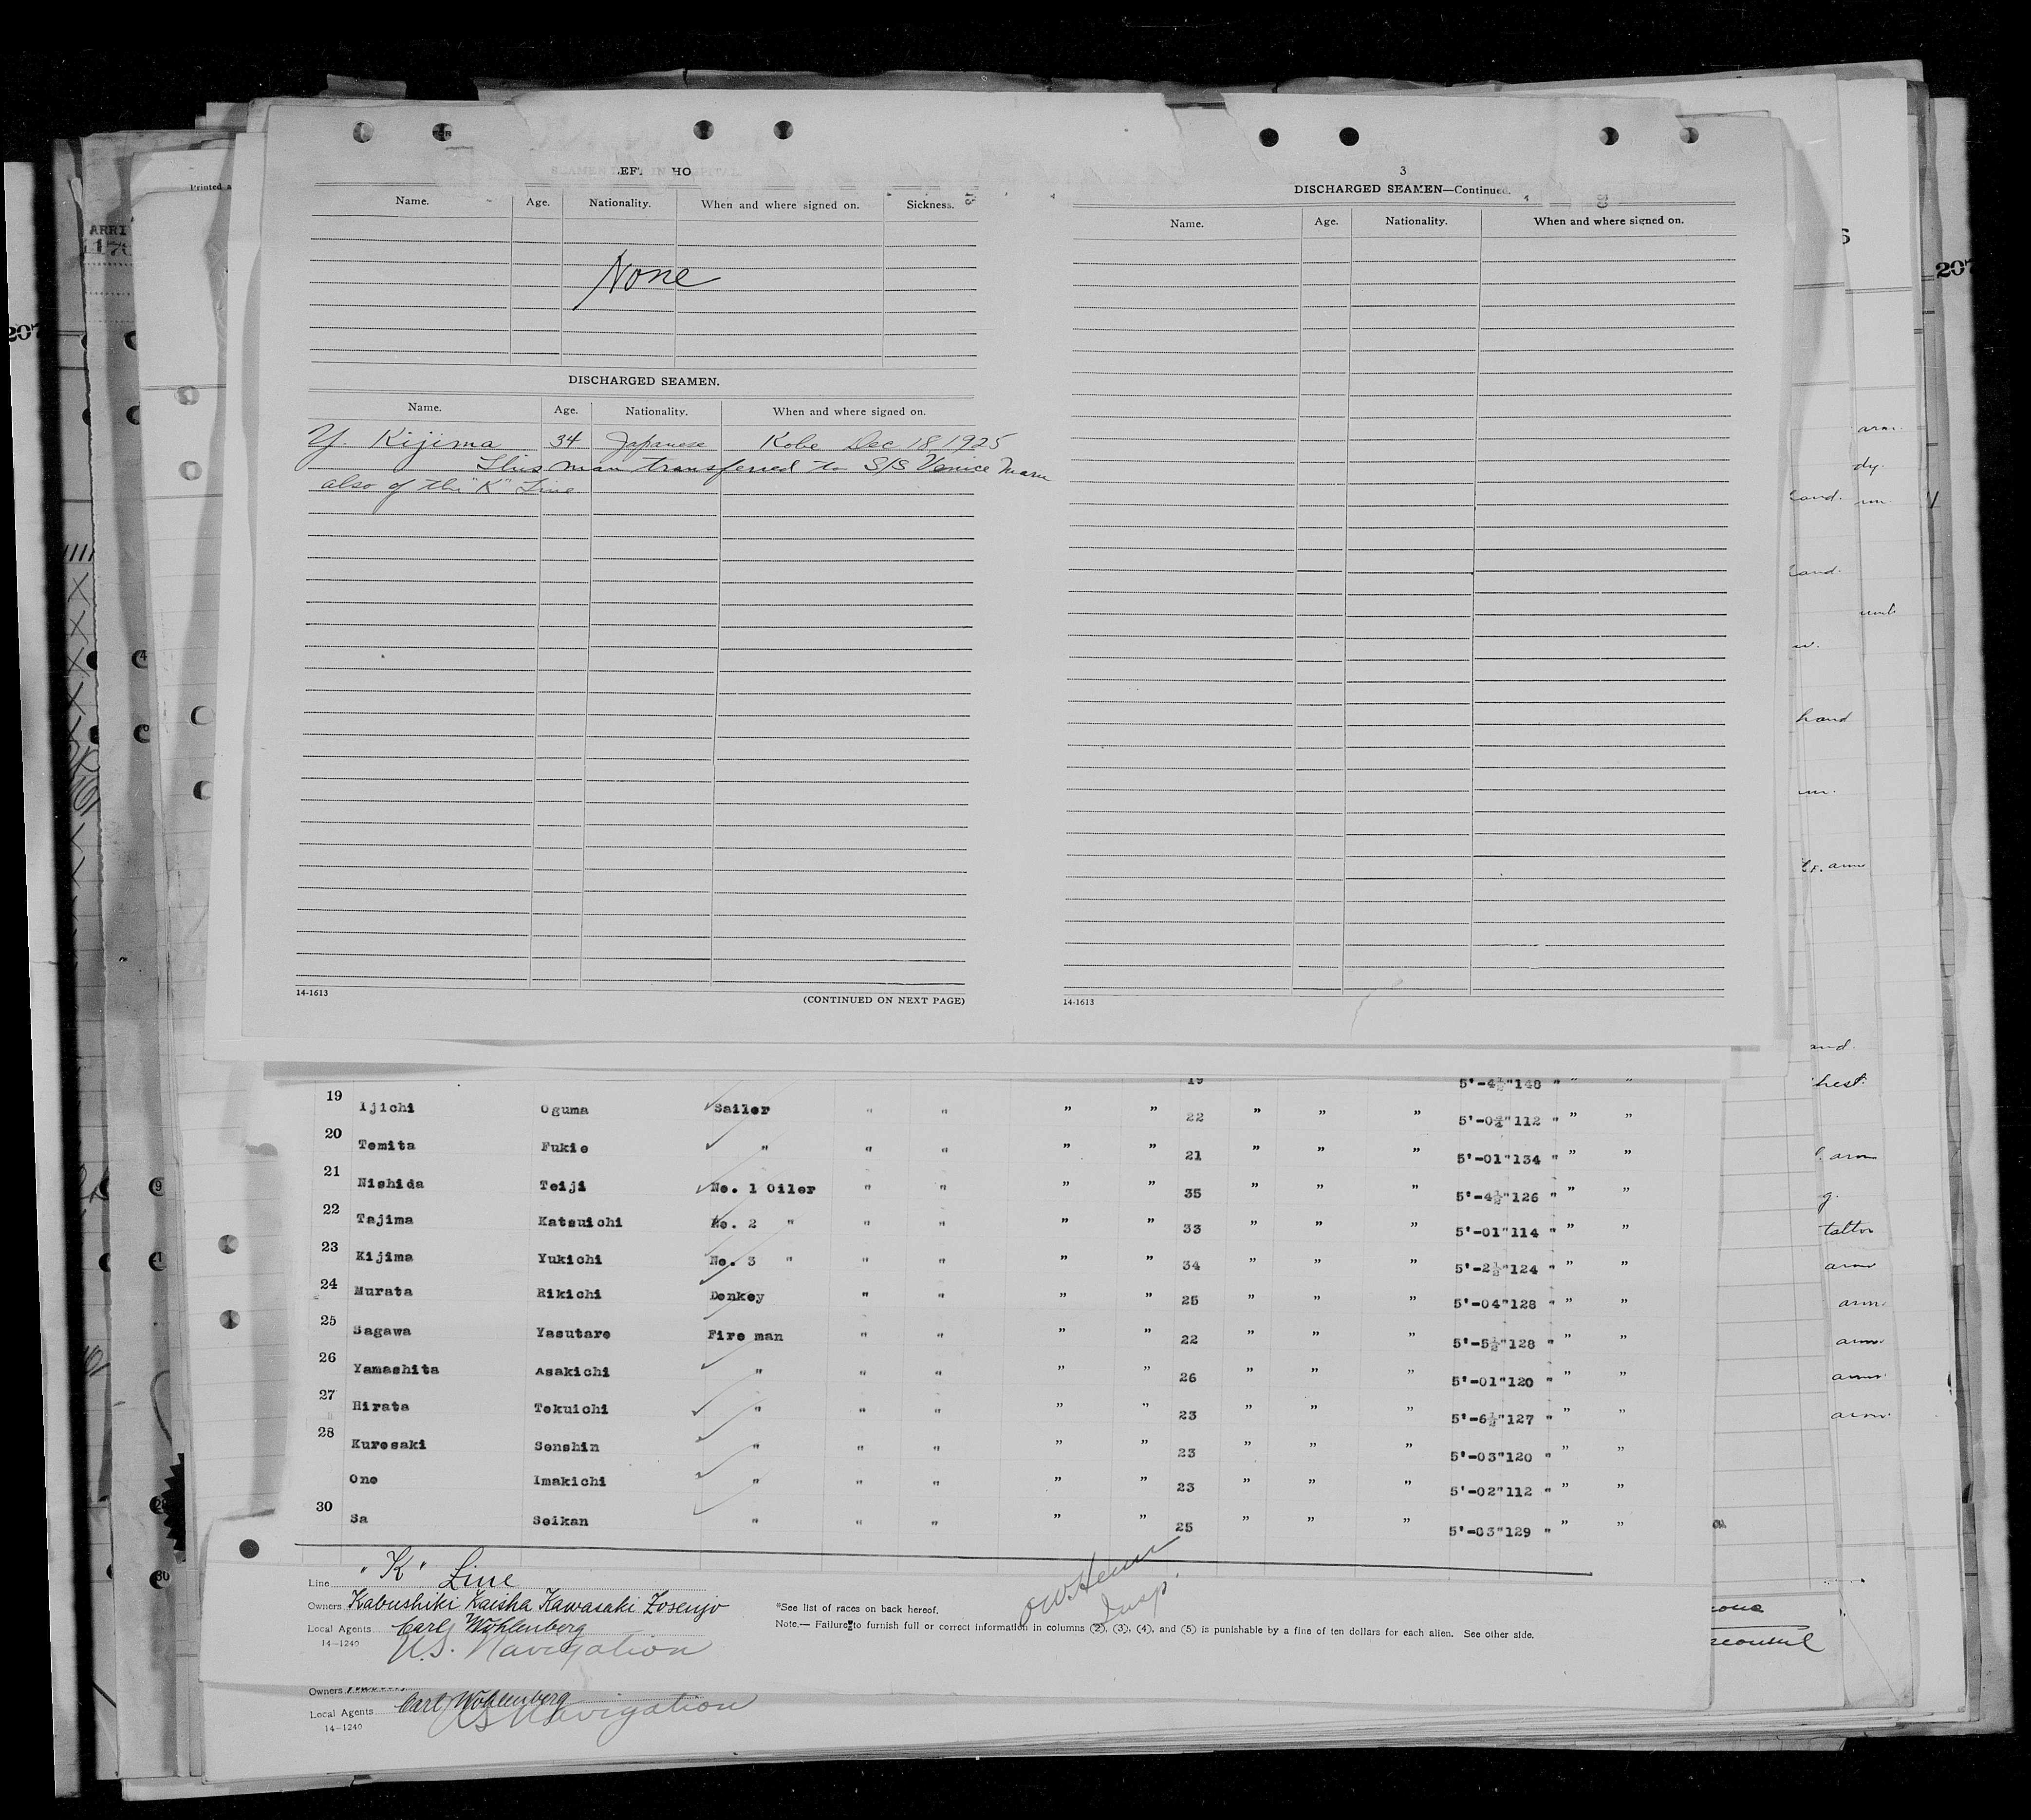 Printed a
ARRI
207
207
3
DISCHARGED SEAMEN—Continued.
Name. Age. Nationality. When and where signed on. Sickness.
None
DISCHARGED SEAMEN.
Name. Age. Nationality. When and where signed on.
Y. Kijima 34 Japanese Kobe Dec 18 1925
This man transferred to S/S Venice Maru
also of the "K" Line
14-1613 (CONTINUED ON NEXT PAGE)
Name. Age. Nationality. When and where signed on.
14-1613
19 5'-4½"148 " " "
19 Ijichi Oguma Sailor " " " " 22 " " " 5'-0¾"112 " " "
20 Tomita Fukio " " " " " 21 " " " 5'-01"134 " " "
21 Nishida Teiji No. 1 Oiler " " " " 35 " " " 5'-4½"126 " " "
22 Tajima Katsuichi No. 2 " " " " " 33 " " " 5'-01"114 " " "
23 Kijima Yukichi No. 3 " " " " " 34 " " " 5'-2½"124 " " "
24 Murata Rikichi Donkey " " " " 25 " " " 5'-04"128 " " "
25 Sagawa Yasutaro Fire man " " " " 22 " " " 5'-5½"128 " " "
26 Yamashita Asakichi " " " " " 26 " " " 5'-01"120 " " "
27 Hirata Tokuichi " " " " " 23 " " " 5'-6½"127 " " "
28 Kurosaki Senshin " " " " " 23 " " " 5'-03"120 " " "
Ono Imakichi " " " " " 23 " " " 5'-02"112 " " "
30 Sa Seikan " " " " " 25 " " " 5'-03"129 " " "
Line "K" Line
Owners Kabushiki Kaisha Kawasaki Zosenjo
Local Agents Carl Wohlenberg
14-1240 U.S. Navigation
Insp.
*See list of races on back hereof.
Note.— Failure to furnish full or correct information in columns (2), (3), (4), and (5) is punishable by a fine of ten dollars for each alien. See other side.
Owners
Local Agents Carl Wohlenberg
14-1240 US Navigation
arm.
hand
arm
arm
arm
arm
arm
arm